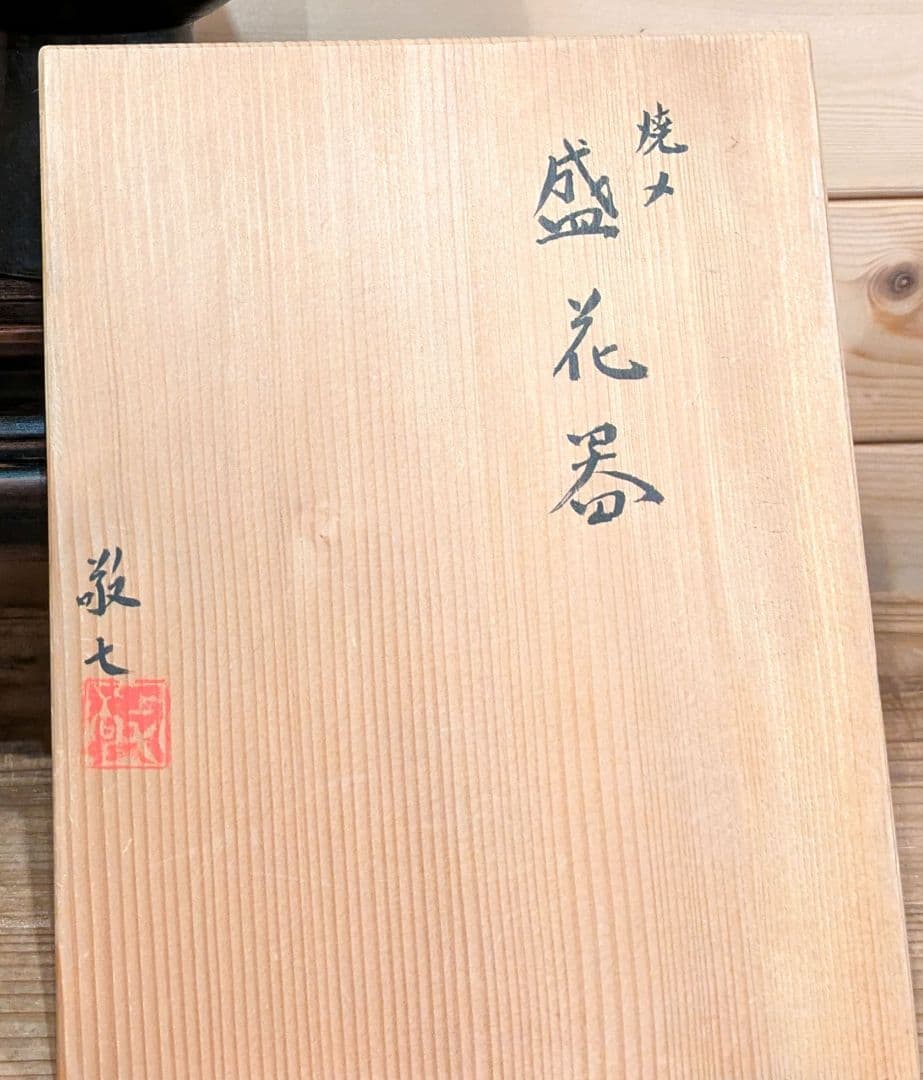 焼〆
盛花器
敬七